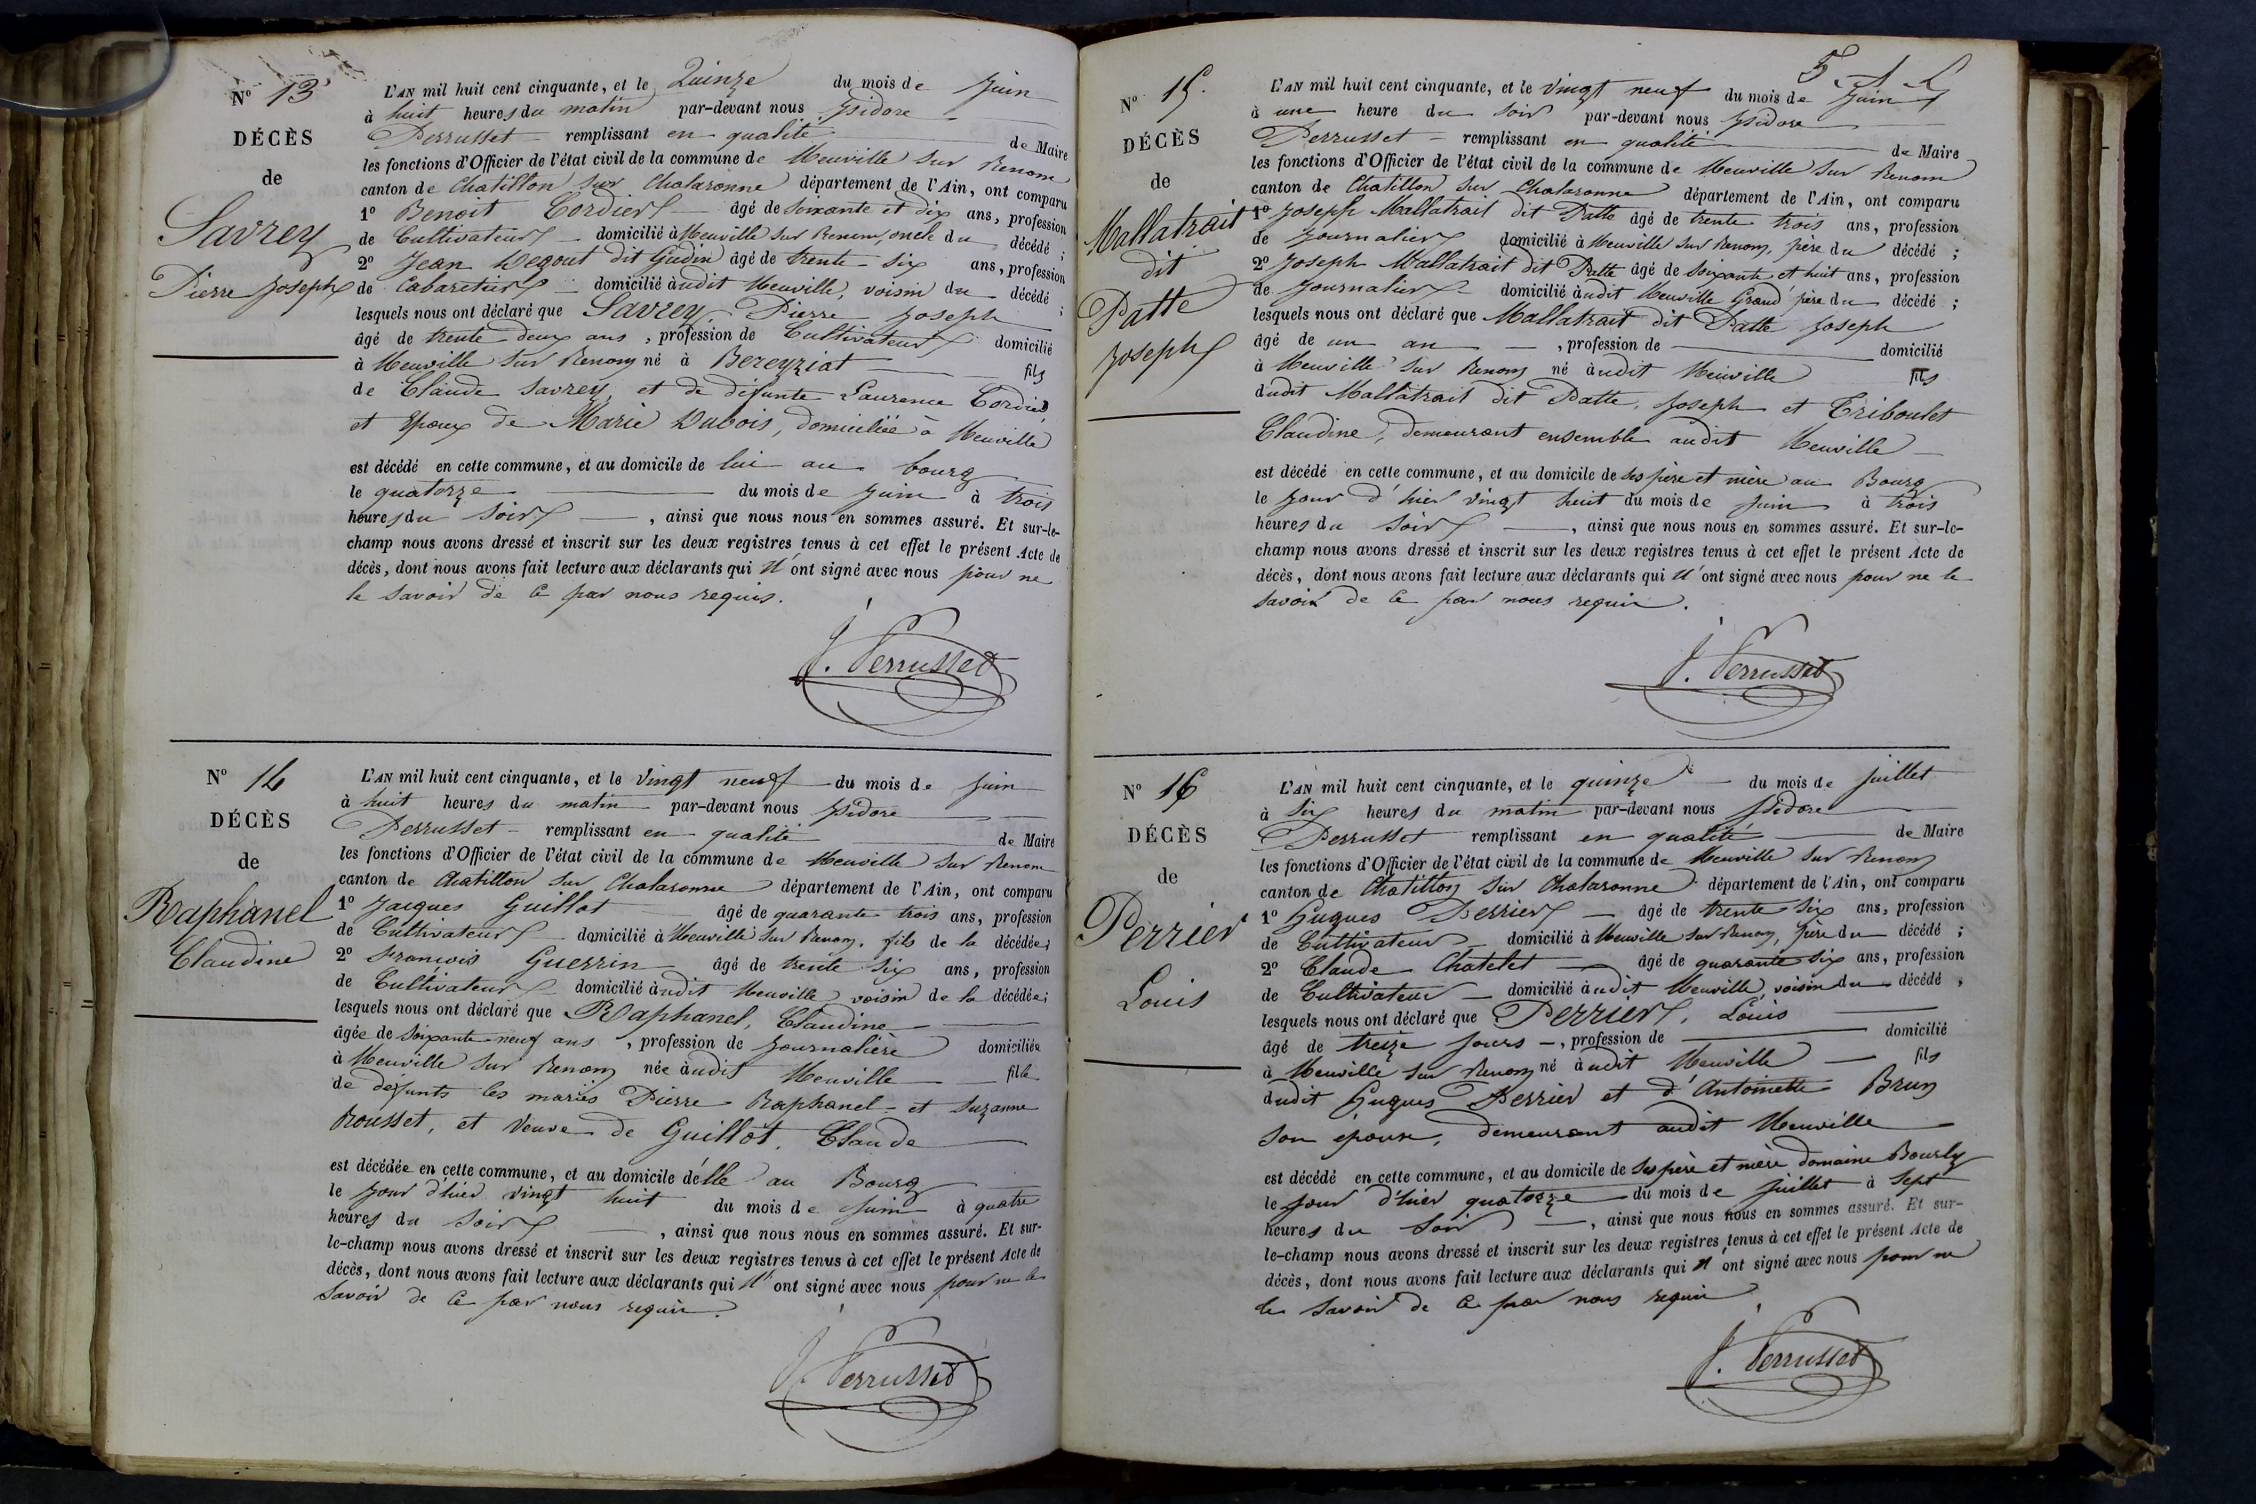 Nº 13
DÉCÈS
de
Savrey
Pierre Joseph
L'AN mil huit cent cinquante, et le Quinze du mois de Juin
à huit heures du matin par-devant nous Isidore
Perrusset remplissant en qualité de Maire
les fonctions d'Officier de l'état civil de la commune de Neuville sur Renom
canton de Chatillon sur Chalaronne département de l'Ain, ont comparu
1º Benoit Cordier âgé de soixante et dix ans, profession
de Cultivateur domicilié à Neuville sur Renom, oncle du décédé ;
2º Jean Degout dit Gudin âgé de trente six ans, profession
de Cabaretier domicilié àudit Neuville, voisin du décédé ;
lesquels nous ont déclaré que Savrey, Pierre Joseph
âgé de trente deux ans, profession de Cultivateur domicilié
à Neuville sur Renom né à Bereyziat fils
de Claude Savrey et de défunte Laurence Cordier
et Epoux de Marie Dubois, domiciliée à Neuville
est décédé en cette commune, et au domicile de lui au bourg
le quatorze du mois de Juin à trois
heures du Soir, ainsi que nous nous en sommes assuré. Et sur-le-
champ nous avons dressé et inscrit sur les deux registres tenus à cet effet le présent Acte de
décès, dont nous avons fait lecture aux déclarants qui n'ont signé avec nous pour ne
le savoir de ce par nous requis.
J. Perrusset
Nº 14
DÉCÈS
de
Raphanel
Claudine
L'AN mil huit cent cinquante, et le vingt neuf du mois de Juin
à huit heures du matin par-devant nous Isidore
Perrusset remplissant en qualité de Maire
les fonctions d'Officier de l'état civil de la commune de Neuville sur Renom
canton de Chatillon sur Chalaronne département de l'Ain, ont comparu
1º Jacques Guillot âgé de quarante trois ans, profession
de Cultivateur domicilié à Neuville sur Renom, fils de la décédée ;
2º François Guerrin âgé de trente six ans, profession
de Cultivateur domicilié àudit Neuville voisin de la décédée ;
lesquels nous ont déclaré que Raphanel, Claudine
âgée de soixante neuf ans, profession de Journalière domiciliée
à Neuville sur Renom née àudit Neuville fille
de défunts les mariés Pierre Raphanel et Suzanne
Rousset, et Veuve de Guillot, Claude
est décédée en cette commune, et au domicile d'elle au Bourg
le jour d'hier vingt huit du mois de Juin à quatre
heures du Soir, ainsi que nous nous en sommes assuré. Et sur-
le-champ nous avons dressé et inscrit sur les deux registres tenus à cet effet le présent Acte de
décès, dont nous avons fait lecture aux déclarants qui n'ont signé avec nous pour ne le
savoir de ce par nous requis.
J. Perrusset
Nº 15
DÉCÈS
de
Mallatrait
dit
Patte
Joseph
L'AN mil huit cent cinquante, et le vingt neuf du mois de Juin
à une heure du soir par-devant nous Isidore
Perrusset remplissant en qualité de Maire
les fonctions d'Officier de l'état civil de la commune de Neuville sur Renom
canton de Chatillon sur Chalaronne département de l'Ain, ont comparu
1º Joseph Mallatrait dit Patte âgé de trente trois ans, profession
de Journalier domicilié à Neuville sur Renom, père du décédé ;
2º Joseph Mallatrait dit Patte âgé de soixante et huit ans, profession
de Journalier domicilié àudit Neuville Grand père du décédé ;
lesquels nous ont déclaré que Mallatrait dit Patte Joseph
âgé de un an, profession de domicilié
à Neuville sur Renom né àudit Neuville fils
dudit Mallatrait dit Patte, Joseph et Triboulet
Claudine, demeurant ensemble audit Neuville
est décédé en cette commune, et au domicile de ses père et mère au Bourg
le jour d'hier vingt huit du mois de Juin à trois
heures du Soir, ainsi que nous nous en sommes assuré. Et sur-le-
champ nous avons dressé et inscrit sur les deux registres tenus à cet effet le présent Acte de
décès, dont nous avons fait lecture aux déclarants qui n'ont signé avec nous pour ne le
savoir de ce par nous requis.
J. Perrusset
Nº 16
DÉCÈS
de
Perrier
Louis
L'AN mil huit cent cinquante, et le quinze du mois de Juillet
à Six heures du matin par-devant nous Isidore
Perrusset remplissant en qualité de Maire
les fonctions d'Officier de l'état civil de la commune de Neuville sur Renom
canton de Chatillon sur Chalaronne département de l'Ain, ont comparu
1º Hugues Perrier âgé de trente six ans, profession
de Cultivateur domicilié à Neuville sur Renom, père du décédé ;
2º Claude Chatelet âgé de quarante six ans, profession
de Cultivateur domicilié àudit Neuville, voisin du décédé ;
lesquels nous ont déclaré que Perrier, Louis
âgé de treize jours, profession de domicilié
à Neuville sur Renom né àudit Neuville fils
dudit Hugues Perrier et d'Antoinette Brun
son épouse, demeurant audit Neuville
est décédé en cette commune, et au domicile de ses père et mère domaine Bourly
le jour d'hier quatorze du mois de Juillet à Sept
heures du Soir, ainsi que nous nous en sommes assuré. Et sur-
le-champ nous avons dressé et inscrit sur les deux registres tenus à cet effet le présent Acte de
décès, dont nous avons fait lecture aux déclarants qui n'ont signé avec nous pour ne
le savoir de ce par nous requis
J. Perrusset